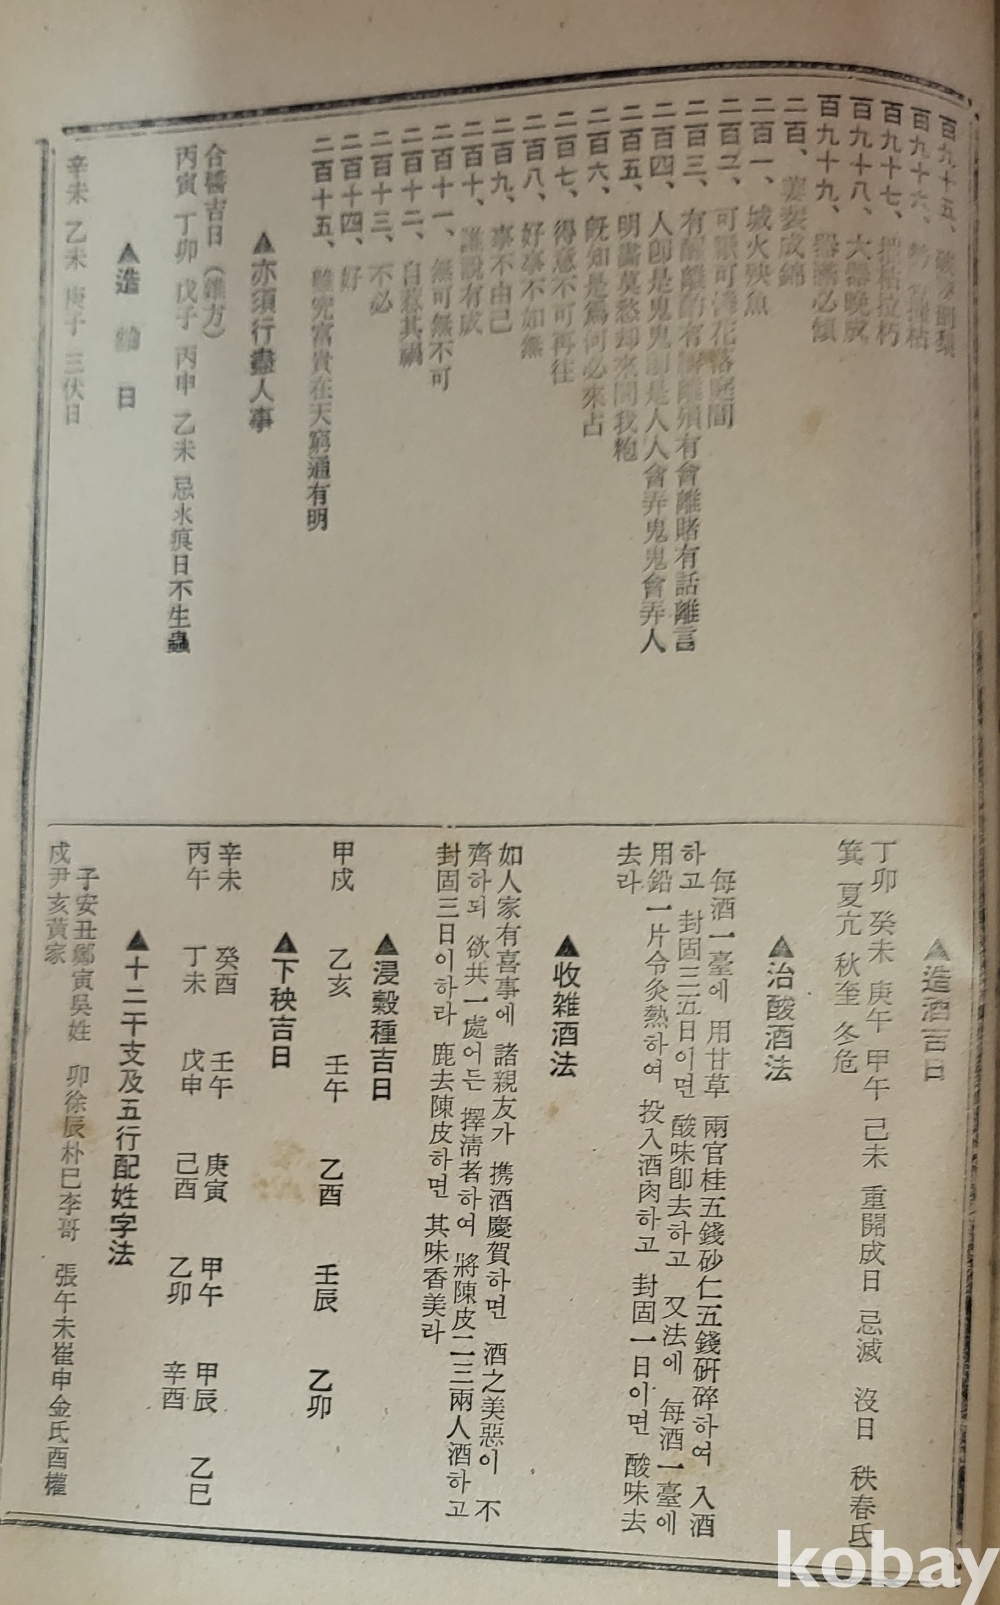 百九十五、
百九十六、
百九十七、摧枯拉朽
百九十八、大器晩成
百九十九、器滿必傾
二百、萋斐成錦
二百一、城火殃魚
二百二、可
二百三、有
二百四、人卽是鬼鬼卽是人人會弄鬼鬼會弄人
二百五、明晝莫愁却來問我
二百六、旣知是爲何必來占
二百七、得意不可再往
二百八、好事不如無
二百九、事不由己
二百十、誰說有成
二百十一、無可無不可
二百十二、自惹其禍
二百十三、不必
二百十四、好
二百十五、雖究富貴在天窮通有明
▲亦須行盡人事
合醬吉日(雜方)
丙寅 丁卯 戊子 丙申 乙未 忌水痕日不生蟲
▲造 日
辛未 乙未 庚子 三伏日
▲造酒吉日
丁卯 癸未 庚午 甲午 己未 重開成日 忌滅 沒日 秩春氐
箕 夏亢 秋奎 冬危
▲治酸酒法
每酒一臺에 用甘草 兩官桂五錢砂仁五錢硏碎하여 入酒
하고 封固三五日이면 酸味卽去하고 又法에 每酒一臺에
用鉛一片令灸熱하여 投入酒內하고 封固一日이면 酸味去
去라
▲收雜酒法
如人家有喜事에 諸親友가 携酒慶賀하면 酒之美惡이 不
齊하되 欲共一處어든 擇淸者하여 將陳皮二三兩人酒하고
封固三日이하라 鹿去陳皮하면 其味香美라
▲浸穀種吉日
甲戍 乙亥 壬午 乙酉 壬辰 乙卯
▲下秧吉日
辛未 癸酉 壬午 庚寅 甲午 甲辰 乙巳
丙午 丁未 戊申 己酉 乙卯 辛酉
▲十二干支及五行配姓字法
子安丑鄭寅吳姓 卯徐辰朴巳李哥 張午未崔申金氏酉權
戍尹亥黃家